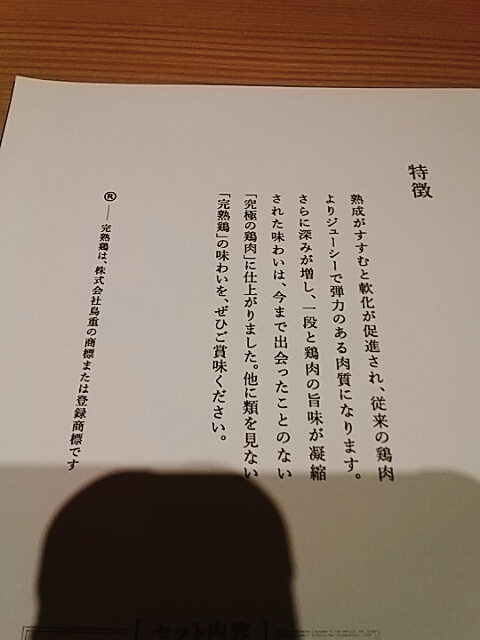 特徴
熟成がすすむと軟化が促進され、従来の鶏肉
よりジューシーで弾力のある肉質になります。
さらに深みが増し、一段と鶏肉の旨味が凝縮
された味わいは、今まで出会ったことのない
「究極の鶏肉」に仕上がりました。他に類を見ない
「完熟鶏」の味わいを、ぜひご賞味ください。
®── 完熟鶏は、株式会社鳥重の商標または登録商標です
[セット内容]